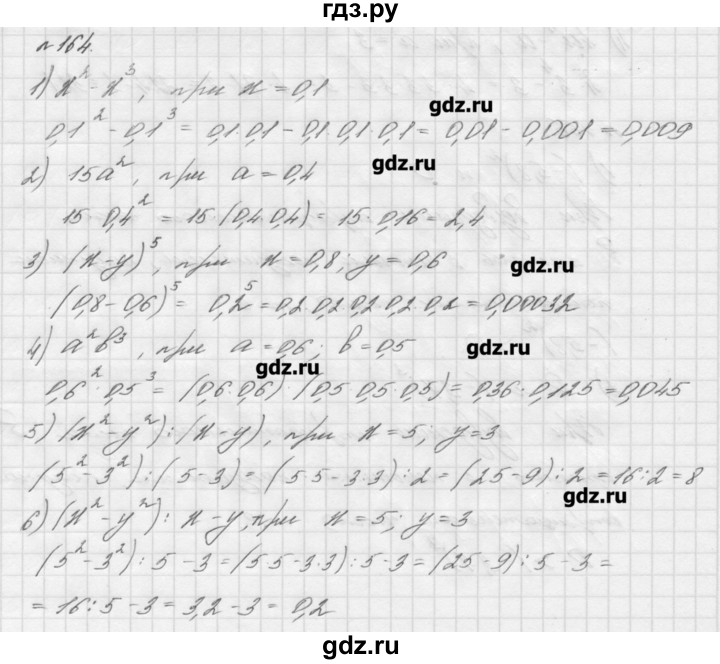 гдз.ру
№164.
1) x² - x³, при x = 0,1
gdz.ru
0,1² - 0,1³ = 0,1·0,1 - 0,1·0,1·0,1 = 0,01 - 0,001 = 0,009
gdz.ru
2) 15a², при a = 0,4
15·0,4² = 15·(0,4·0,4) = 15·0,16 = 2,4
3) (x-y)⁵, при x = 0,8; y = 0,6
gdz.ru
(0,8-0,6)⁵ = 0,2⁵ = 0,2·0,2·0,2·0,2·0,2 = 0,00032
4) a²b³, при a = 0,6; b = 0,5
gdz.ru
gdz.ru
0,6²·0,5³ = (0,6·0,6)·(0,5·0,5·0,5) = 0,36·0,125 = 0,045
5) (x²-y²):(x-y), при x = 5; y = 3
(5²-3²):(5-3) = (5·5-3·3):2 = (25-9):2 = 16:2 = 8
gdz.ru
6) (x²-y²): x-y, при x = 5; y = 3
(5²-3²):5-3 = (5·5-3·3):5-3 = (25-9):5-3 =
= 16:5-3 = 3,2-3 = 0,2
gdz.ru